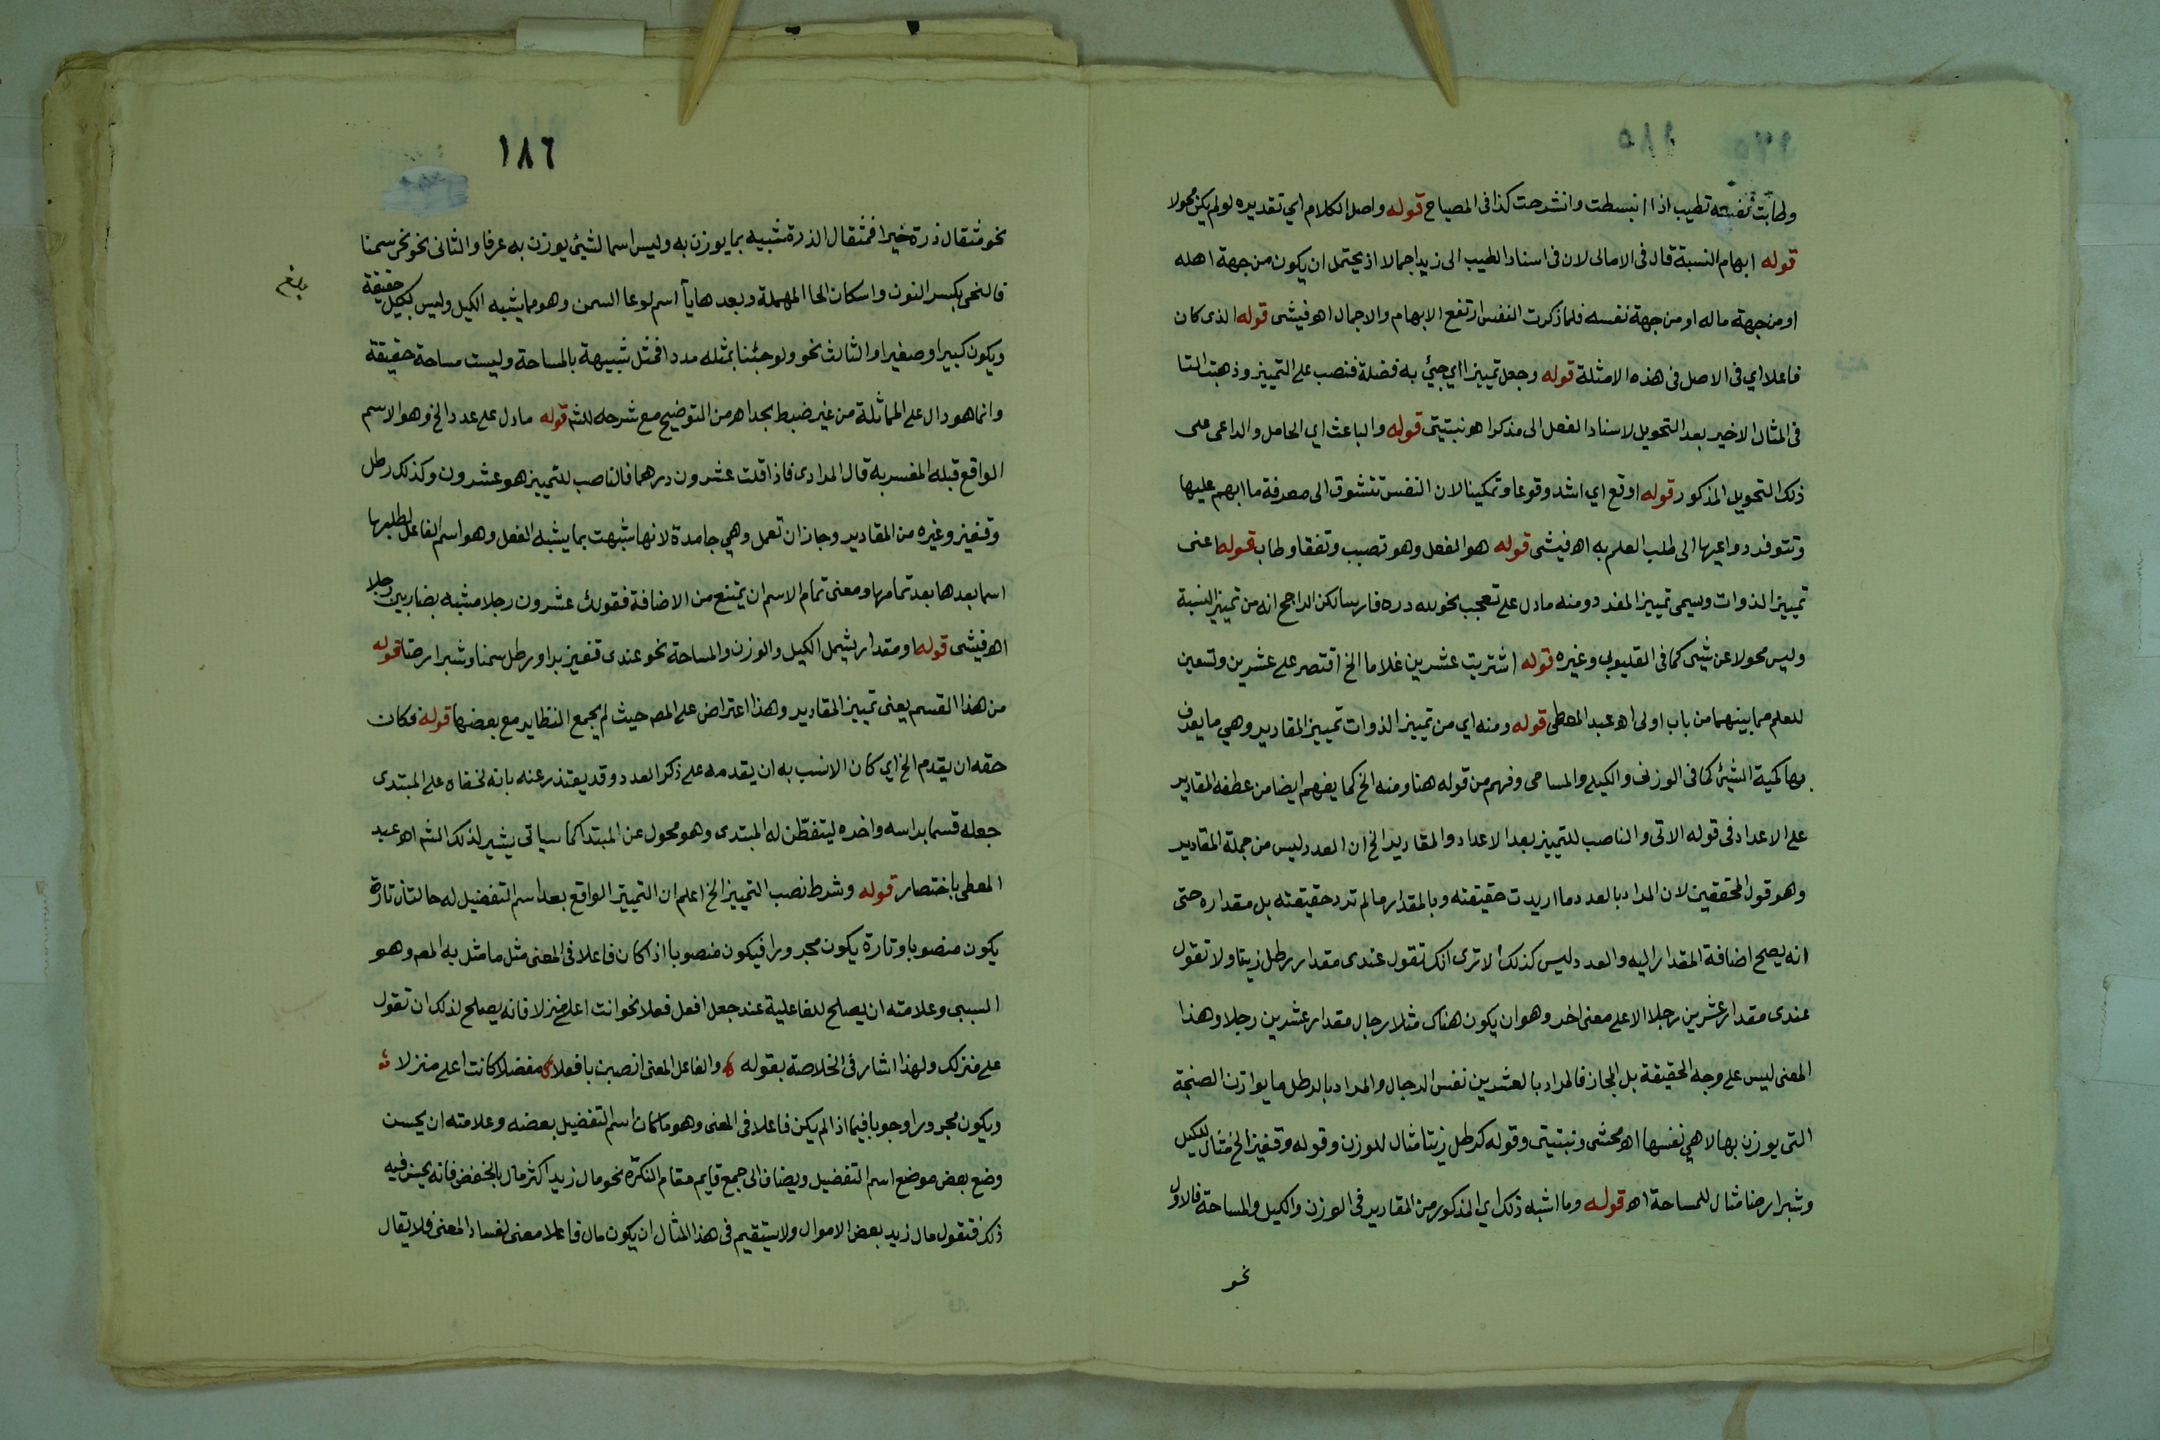 ١٨٥
وطابت نفسه تطيب اذا انبسطت وانشرحت كذا فى المصباح قوله واصل الكلام اي تقديره لو لم يكن محولا
قوله ابهام النسبة قال فى الامالى لان فى اسناد الطيب الى زيد اجمالا اذ يحتمل ان يكون من جهة اهله
او من جهة ماله او من جهة نفسه فلما ذكرت النفس ارتفع الابهام والاجمال اه فيشى قوله الذى كان
فاعلا اي فى الاصل فى هذه الامثلة قوله وجعل تمييزا اي جيئ به فضلة فنصب على التمييز وذهبت التا
فى المثال الاخير بعد التحويل لاسناد الفعل الى مذكر اه نبتيتى قوله والباعث اي الحامل والداعى على
ذلك التحويل المذكور قوله اوقع اي اشد وقوعا وتمكينا لان النفس تتشوق الى معرفة ما ابهم عليها
وتتوفر دواعيها الى طلب العلم به اه فيشى قوله هو الفعل وهو تصبب وتفقا وطاب قوله اعنى
تمييز الذوات ويسمى تمييز المفرد ومنه ما دل على تعجب نحو لله دره فارسا لكن الراجح انه من تمييز النسبة
وليس محولا عن شيى كما فى القليوبى وغيره قوله اشتريت عشرين غلاما الخ اقتصر على عشرين وتسعين
للعلم مما بينهما من باب اولى اه عبد المعطى قوله ومنه اي من تمييز الذوات تمييز المقادير وهي ما يعرف
بها كمية الشيئ كما فى الوزنى والكيلى والمساحى وفهم من قوله هنا ومنه الخ كما يفهم ايضا من عطفه المقادير
على الاعداد فى قوله الاتى والناصب للتمييز بعد الاعداد والمقادير الخ ان العدد ليس من جملة المقادير
وهو قول المحققين لان المراد بالعدد ما اريدت حقيقته وبالمقدار ما لم ترد حقيقته بل مقداره حتى
انه يصح اضافة المقدار اليه والعدد ليس كذلك الا ترى انك تقول عندى مقدار رطل زيتا ولا تقول
عندى مقدار عشرين رجلا الا على معنى اخر وهو ان يكون هناك مثلا رجال مقدار عشرين رجلا وهذا
المعنى ليس على وجه الحقيقة بل المجاز فالمراد بالعشرين نفس الرجال والمراد بالرطل ما يوازن الصنجة
التى يوزن بها لا هي نفسها اه محشى ونبتيتى وقوله كرطل زيتا مثال للوزن وقوله وقفيز الخ مثال للكيل
وشبر ارضا مثال للمساحة اه قوله وما اشبه ذلك اي المذكور من المقادير فى الوزن والكيل والمساحة فالاول
نحو
١٨٦
نحو مثقال ذرة خيرا فمثقال الذرة شبيه بما يوزن به وليس اسما لشيئ يوزن به عرفا والثانى نحو نحى سمنا
فالنحى بكسر النون واسكان الحا المهملة وبعدها يآ اسم لوعا السمن وهو مما يشبه الكيل وليس بكيل حقيقة
ويكون كبيرا وصغيرا والثالث نحو ولو جئنا بمثله مددا فمثل شبيهة بالمساحة وليست مساحة حقيقة
وانما هو دال على المماثلة من غير ضبط بحد اه من التوضيح مع شرحه للشم قوله ما دل على عدد الخ وهو الاسم
الواقع قبله المفسر به قال المرادى فاذا قلت عشرون درهما فالناصب للتمييز هو عشرون وكذلك رطل
وقفيز وغيره من المقادير وجاز ان تعمل وهي جامدة لانها شبهت بما يشبه الفعل وهو اسم الفاعل لطلبها
اسما بعدها بعد تمامها ومعنى تمام الاسم ان يمتنع من الاضافة فقولك عشرون رجلا مشبه بضاربين رجلا
اه فيشى قوله او مقدار يشمل الكيل والوزن والمساحة نحو عندى قفيز برا ورطل سمنا وشبر ارضا قوله
من هذا القسم يعنى تمييز المقادير وهذا اعتراض على المصـ حيث لم يجمع النظاير مع بعضها قوله فكان
حقه ان يقدم الخ اي كان الانسب به ان يقدمه على ذكر العدد وقد يعتذر عنه بانه لخفاه على المبتدى
جعله قسما براسه واخره ليتفطن له المبتدى وهو محول عن المبتدا كما سياتى يشير لذلك الشم اه عبد
المعطى باختصار قوله وشرط نصب التمييز الخ اعلم ان التمييز الواقع بعد اسم التفضيل له حالتان تارة
يكون منصوبا وتارة يكون مجرورا فيكون منصوبا اذا كان فاعلا فى المعنى مثل ما مثل به المصـ وهو
السببى وعلامته ان يصلح للفاعلية عند جعل افعل فعلا نحو انت اعلى منزلا فانه يصلح لذلك ان تقول
على منزلك ولهذا اشار فى الخلاصة بقوله والفاعل المعنى انصبن بافعلا مفضلا كانت اعلى منزلا
ويكون مجرورا وجوبا فيما اذا لم يكن فاعلا فى المعنى وهو ما كان اسم التفضيل بعضه وعلامته ان يحسن
وضع بعض موضع اسم التفضيل ويضاف الى جمع قايم مقام النكرة نحو مال زيد اكثر مال بالخفض فانه يحسن فيه
ذلك فتقول مال زيد بعض الاموال ولا يستقيم فى هذا المثال ان يكون مال فاعلا معنى لفساد المعنى فلا يقال